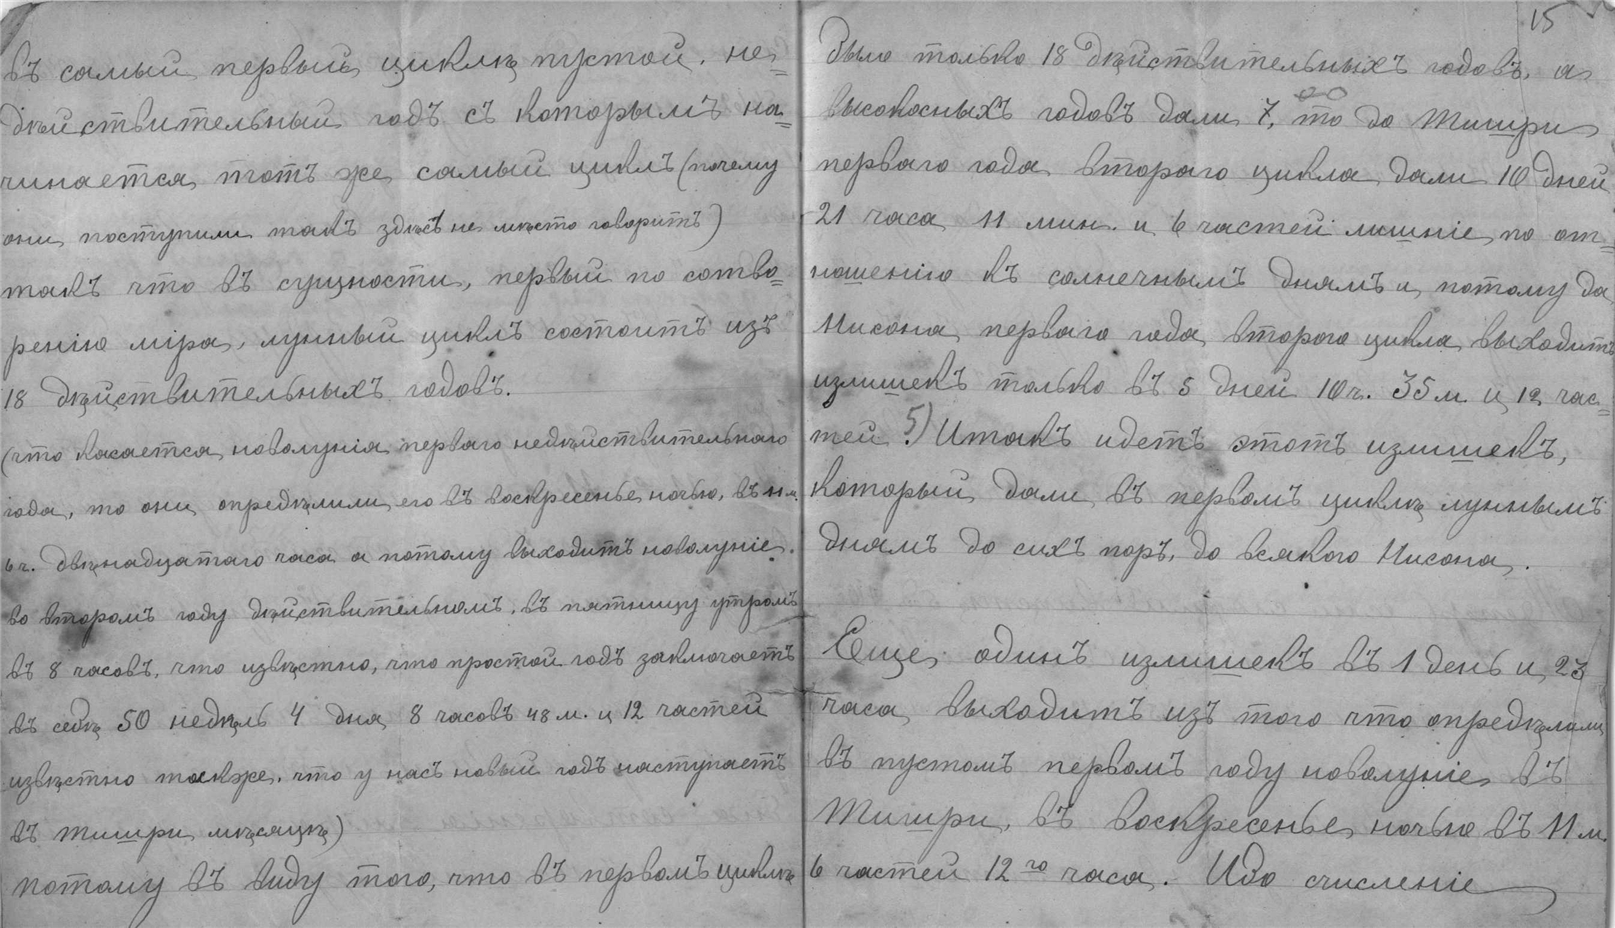 въ самый первый циклъ пустой, не=
дѣйствительный годъ съ которымъ на=
чинается тотъ же самый циклъ (почему
они поступили такъ здѣсь не мѣсто говорить)
такъ что въ сущности, первый по сотво=
ренію міра, лунный циклъ состоитъ изъ
18 дѣйствительныхъ годовъ.
(что касается новолунія перваго недѣйствительнаго
года, то они опредѣлили его въ воскресенье ночью, въ 11 м.
6 ч. двѣнадцатаго часа а потому выходитъ новолуніе
во второмъ году дѣйствительномъ, въ пятницу утромъ
въ 8 часовъ, что извѣстно, что простой годъ заключаетъ
въ себѣ 50 недѣль 4 дня 8 часовъ 48 м. и 12 частей
извѣстно также, что у насъ новый годъ наступаетъ
въ Тишри мѣсяцѣ)
потому въ виду того, что въ первомъ циклѣ
15
было только 18 дѣйствительныхъ годовъ, а
высокосныхъ годовъ дали 7, то до Тишри
перваго года втораго цикла дали 10 дней
21 часа 11 мин. и 6 частей лишніе по от=
ношенію къ солнечнымъ днямъ и потому до
Нисона перваго года втораго цикла выходитъ
излишекъ только въ 5 дней 10 ч. 35 м. и 12 час=
тей 5) Итакъ идетъ этотъ излишекъ,
который дали въ первомъ циклѣ луннымъ
днямъ до сихъ поръ, до всякого Нисона.
Еще одинъ излишекъ въ 1 день и 23
часа выходитъ изъ того что опредѣлили
въ пустомъ первомъ году новолуніе въ
Тишри, въ воскресенье ночью въ 11 м.
6 частей 12 го часа. Ибо счисленіе